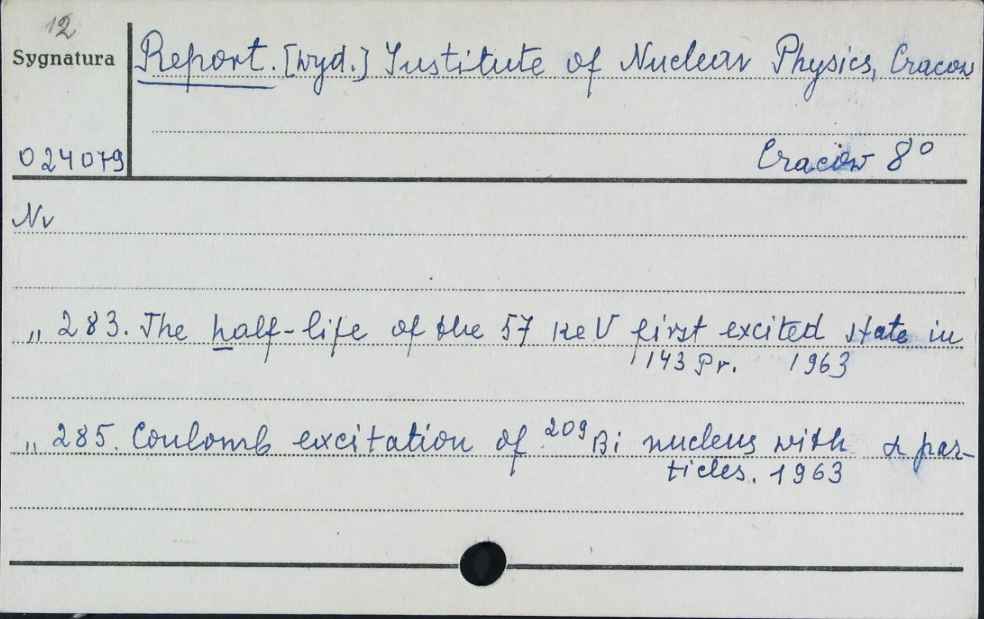 12
Sygnatura
Report. [Wyd.] Institute of Nuclear Physics, Cracow
024079
Cracow 8°
Nr
„ 283. The half-life of the 57 keV first excited state in
143 Pr. 1963
„ 285. Coulomb excitation of ²⁰⁹Bi nucleus with α par-
ticles. 1963